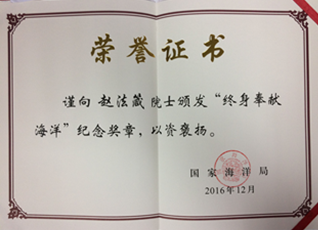 荣誉证书
谨向 赵法箴 院士颁发“终身奉献
海洋”纪念奖章，以资褒扬。
国家海洋局
2016年12月